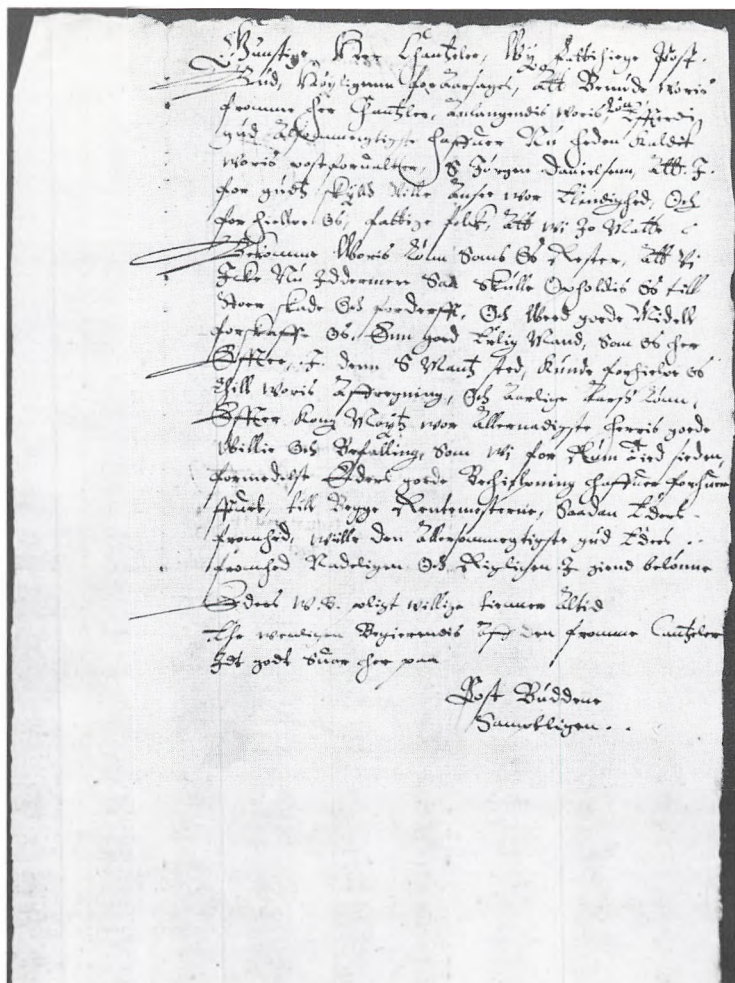 Gunstige Herr Chantzeler, Wÿ fattihiege Post-
Bud, Nöÿligenn foraarsages, Att Bemöde Woris
fromme Her Chantzeler, anlangendis Woris Löen, Effterdi
gud Alsommegtigste haffuer Nu heden Kaldet
Woris postforualter, S Jørgen Danielsenn, Att I
for gudtz skÿld Wille Ansee wor Elendighed, Och
forhielpe Os, fattige folck, Att wi Jo Motte
Bekomme Woris Lönn Soms Os Rester, Att Vi
Icke Nu Iddermere Saa Skulle Opholdis Os till
Stoer skade Och forderff, Och Werd goede Midell
forskaffe Os, Enn goed Erlig Mand, som Os her
Effter, I denn S Mantz sted, Kunde forhielpe Os
thill Woris Affregning, Och Aarlige Aarss Lönn,
Effter Kong Maÿtz wor Allernadigste Herris goede
Willie Och Befalling, Som wi for Rum tied sieden,
formedelst Eders goede Bechifftning haffuer forhuer-
ffuet, till Begge Rentemesterne, Saadan Eders
fromhed, wille den Allersommegtigste gud Eders
fromhed Nadeligen Och Riglichen I giend belønne
Eders W.V. pligt willige tienner Altid
Ehr wenligen Begierendis Aff den fromme Cantzeler
Idt godt Suar her paa
Post Buddene
Samptligen